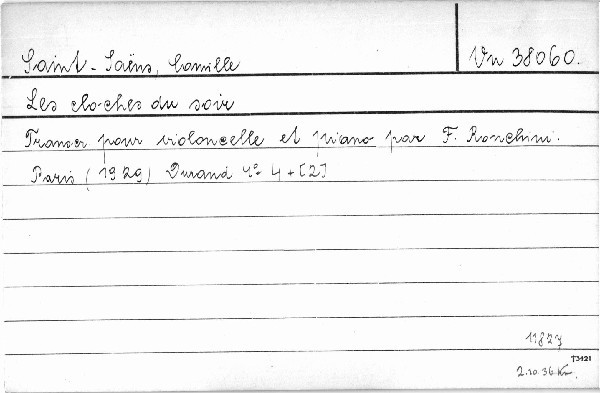 Saint-Saëns, Camille
Vn 38060.
Les cloches du soir
Transcr pour violoncelle et piano par F. Ronchini.
Paris (1929) Durand 4° 4+[2]
11827
T3121
2.10.36 Kr.